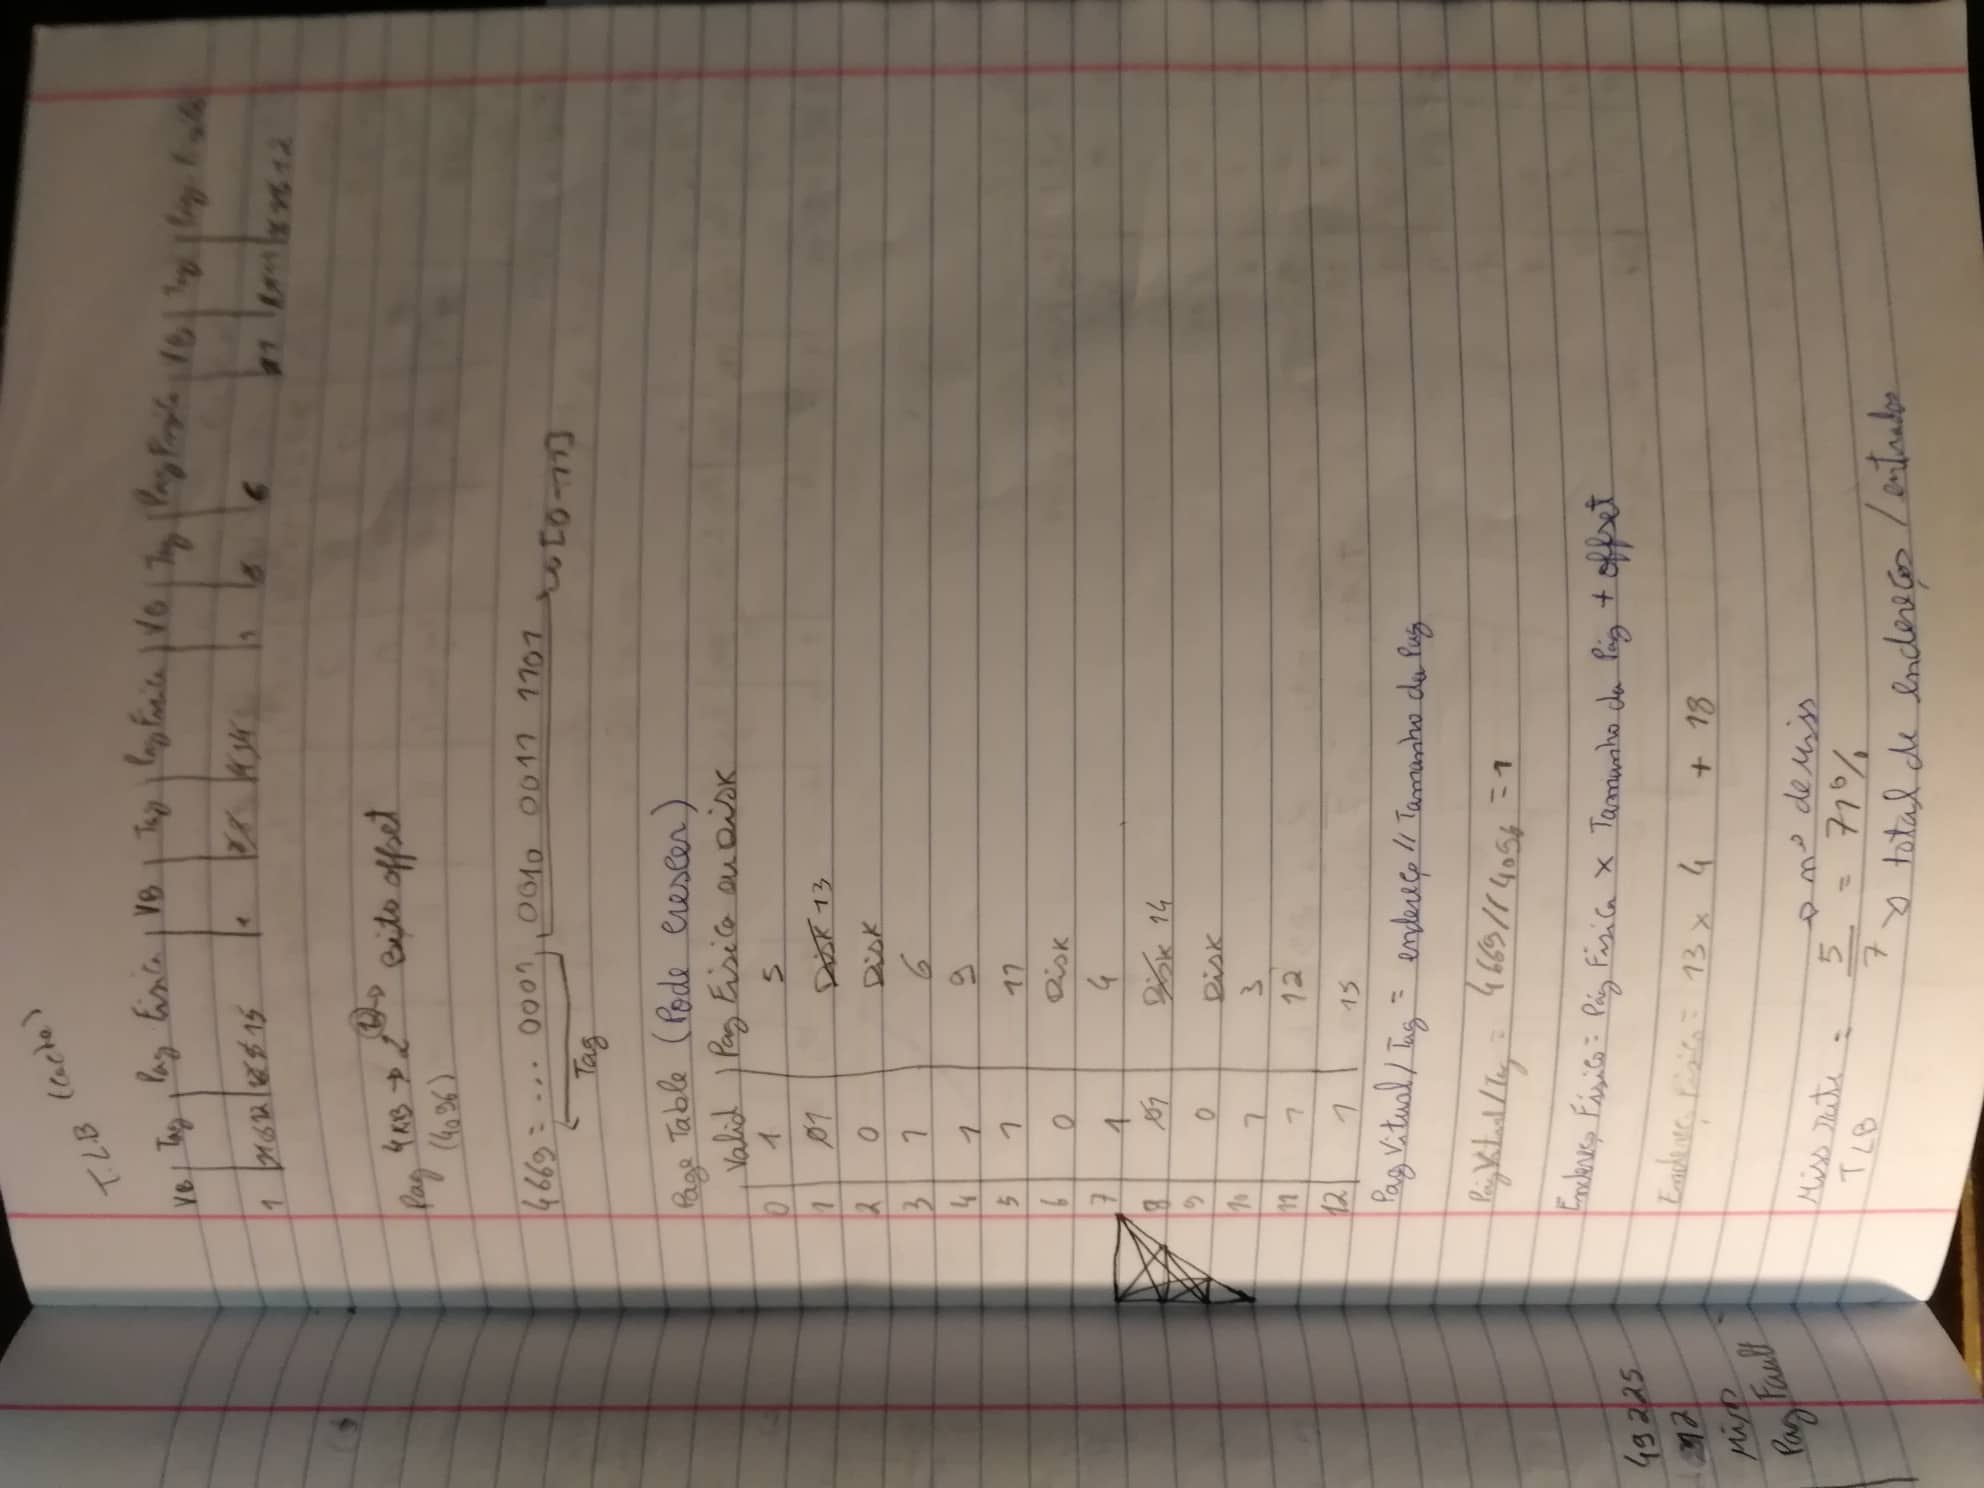 TLB (cache)
VB | Tag | Pag Fisica | VB | Tag | Pag Fisica | VB | Tag | Pag Fisica | VB | Tag | Pag Fisica
1 15 1 1 8 6 12
Pag 4KB → 2 bits offset
(4096)
4669 = ... 0001 0010 0011 1101 → [0-11]
Tag
Page Table (Pode crescer)
Valid | Pag Fisica ou Disk
0 1 5
1 01 Disk 13
2 0 Disk
3 1 6
4 1 9
5 1 11
6 0 Disk
7 1 4
8 01 Disk 14
9 0 Disk
10 1 3
11 1 12
12 1 15
Pag Vitual / Tag = endereço // Tamanho da Pag
Pag Vitual / Tag = 4669 // 4096 = 1
Endereço Físico = Pág Física x Tamanho da Pág + offset
Endereço Físico = 13 x 4 + 18
Miss rate = 5 → nº de miss
TLB 7 = 71%
→ total de endereços / entradas
49225
12
Miss
Pag Fault